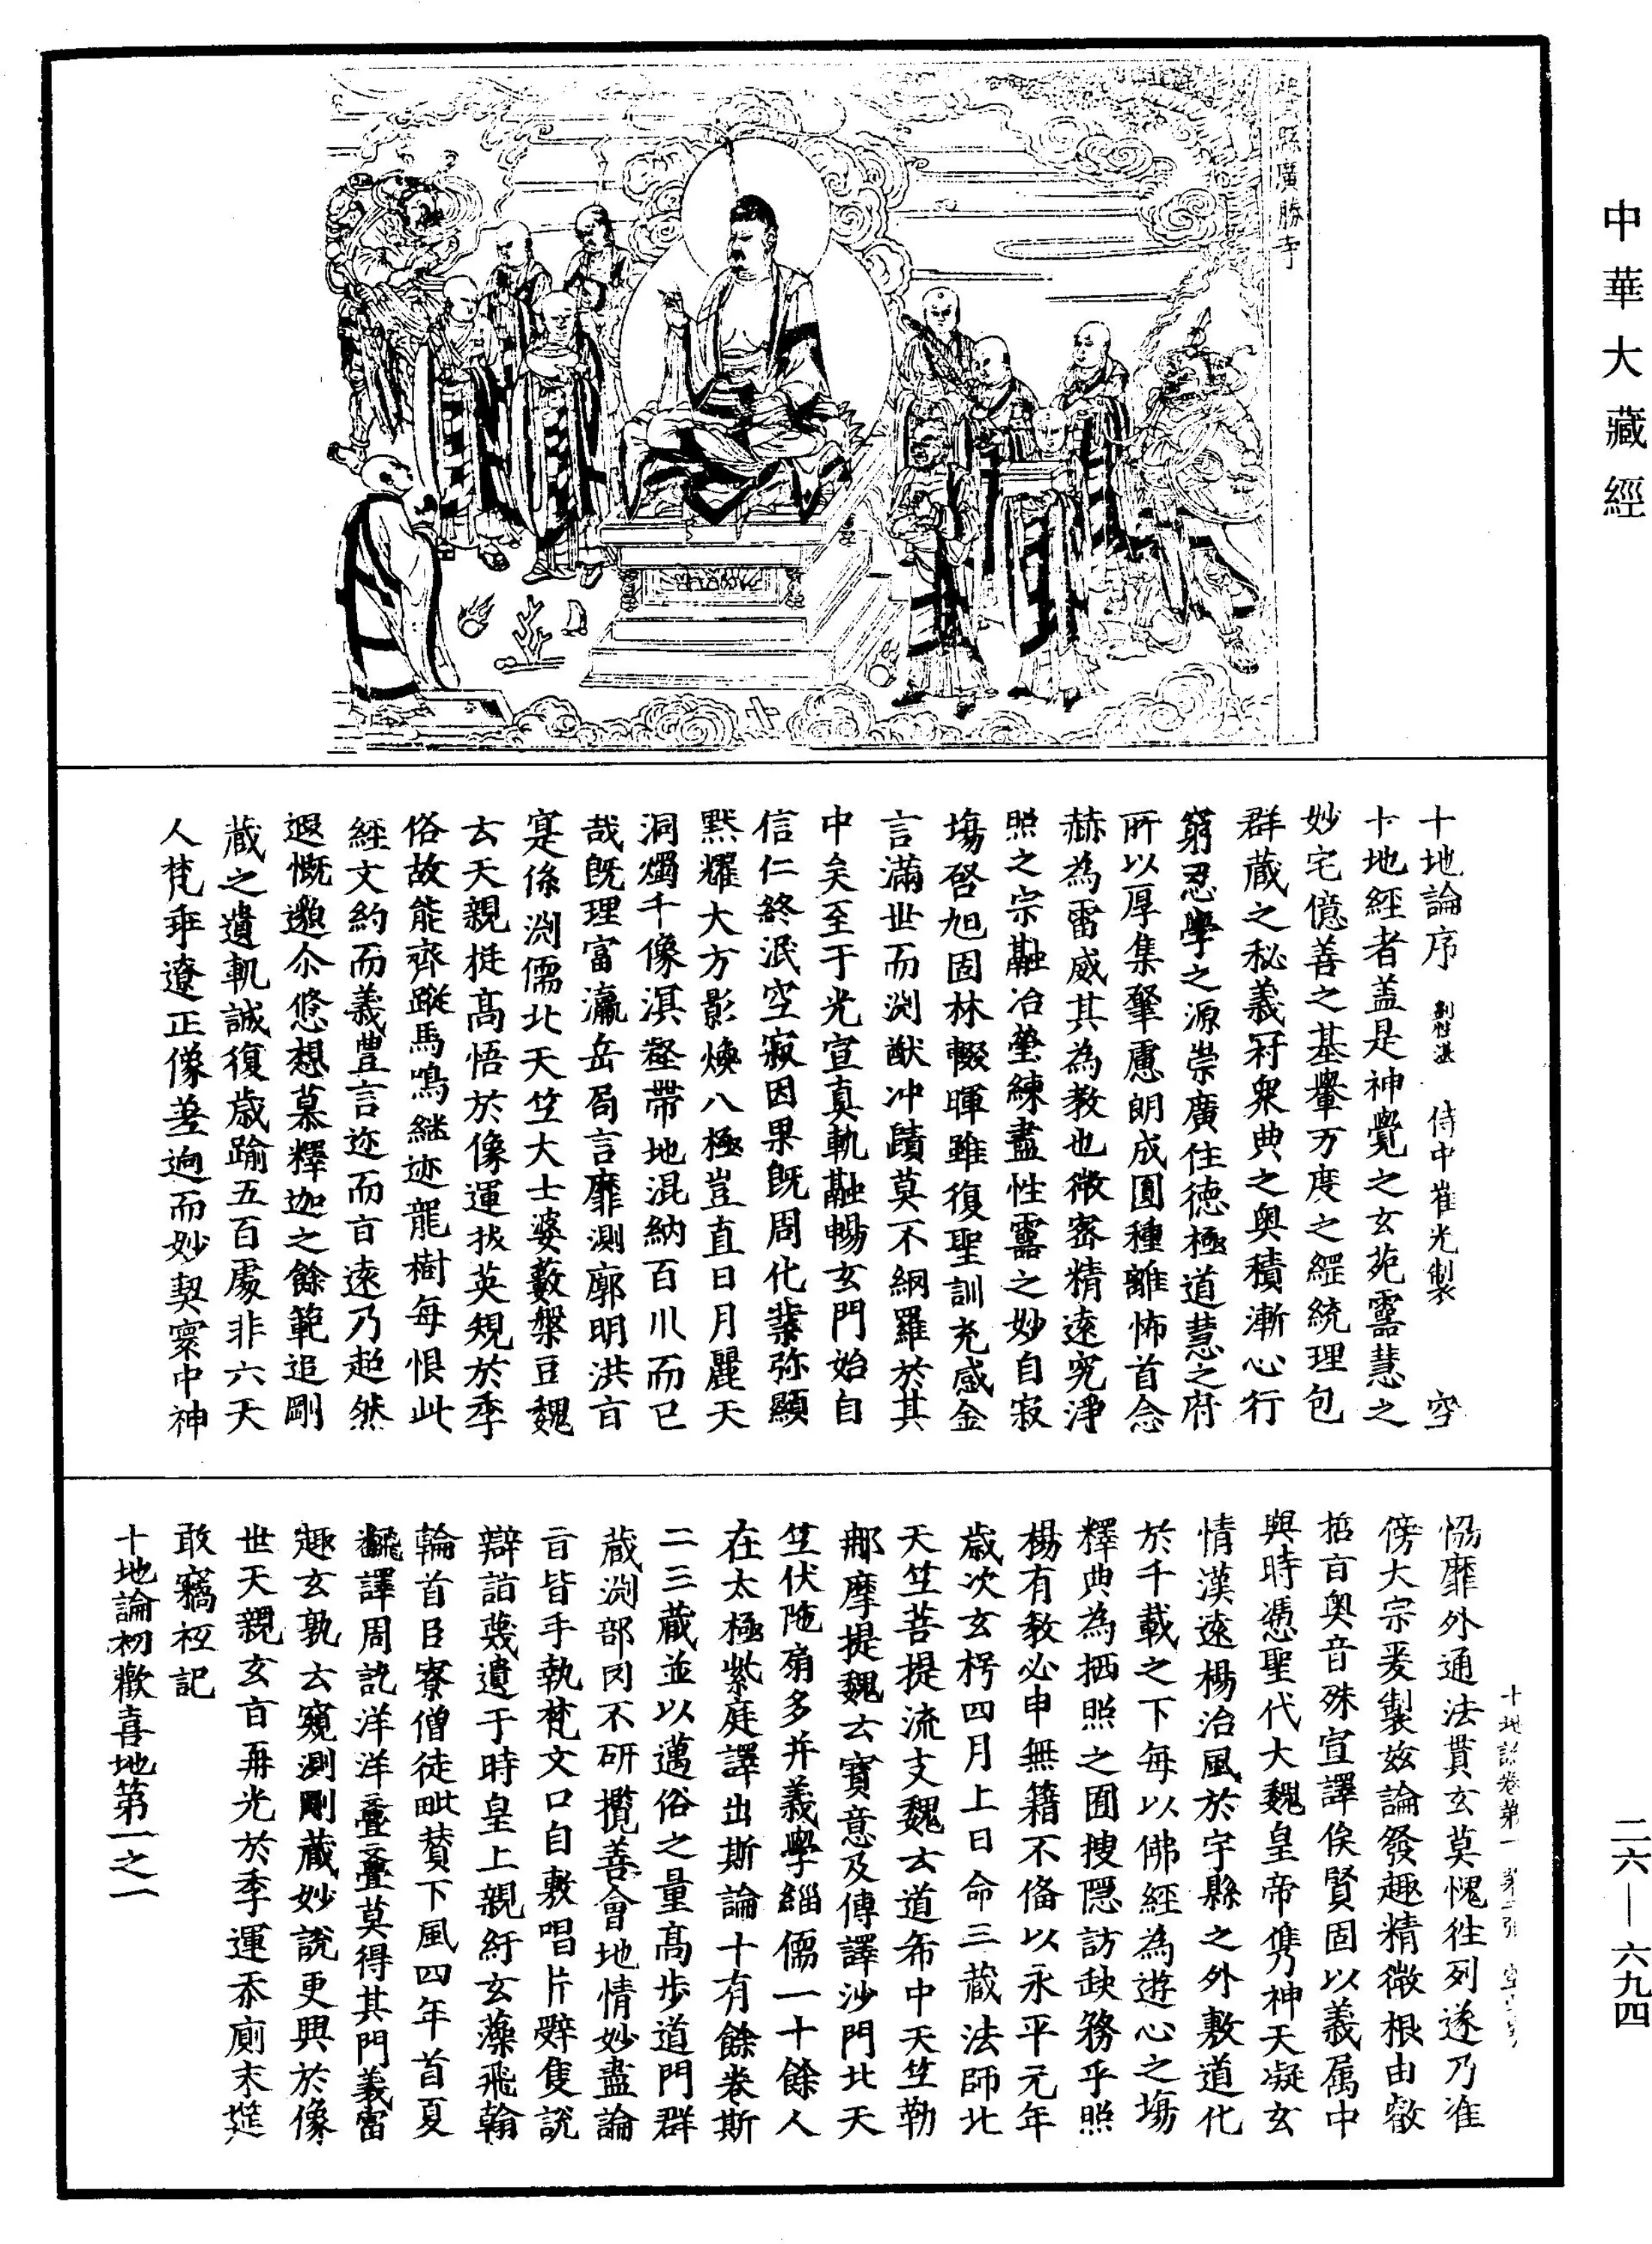 中華大藏經
趙城縣廣勝寺
十地論序 劉性湛 侍中崔光製 空
十地經者盖是神覺之玄苑靈慧之
妙宅億善之基轝万度之綱統理包
群藏之秘義冠衆典之奥積漸心行
窮忍學之源崇廣住德極道慧之府
所以厚集肇慮朗成圓種離怖首念
赫為雷威其為教也微密精遠究淨
照之宗融冶瑩練盡性靈之妙自寂
塲啓旭固林輟暉雖復聖訓充感金
言滿世而渕猷冲賾莫不網羅於其
中矣至于光宣真軌融暢玄門始自
信仁終泯空寂因果既周化業弥顯
默耀大方影煥八極豈直日月麗天
洞燭千像溟壑帶地混納百川而已
哉既理富瀛岳局言靡測廓明洪旨
寔係渕儒北天竺大士婆藪槃豆魏
云天親挺高悟於像運拔英規於季
俗故能齊蹤馬鳴継迹龍樹每恨此
經文約而義豊言迩而旨遠乃超然
遐慨邈尒悠想慕釋迦之餘範追剛
藏之遺軌誠復歳踰五百處非六天
人梵乖遼正像差逈而妙契寰中神
十地論卷第一 第二張 空字号
恊靡外通法貫玄莫愧徃列遂乃准
傍大宗爰製兹論發趣精微根由睿
哲旨奥音殊宣譯俟賢固以義属中
興時憑聖代大魏皇帝隽神天凝玄
情漢遠楊治風於宇縣之外敷道化
於千載之下每以佛經為遊心之塲
釋典為栖照之囿搜隠訪缺務乎照
楊有教必申無籍不俻以永平元年
歳次玄枵四月上日命三藏法師北
天竺菩提流支魏云道希中天竺勒
那摩提魏云寶意及傳譯沙門北天
竺伏陁扇多并義學緇儒一十餘人
在太極紫庭譯出斯論十有餘卷斯
二三藏並以邁俗之量高步道門群
藏渕部罔不研攬善會地情妙盡論
旨皆手執梵文口自敷唱片辤隻說
辯詣蔑遺于時皇上親紆玄藻飛翰
輪首臣寮僧徒毗賛下風四年首夏
飜譯周訖洋洋亹亹莫得其門義富
趣玄孰云窺測剛藏妙說更興於像
世天親玄旨再光於季運忝廁末筵
敢竊祗記
十地論初歡喜地第一之一
二六—六九四